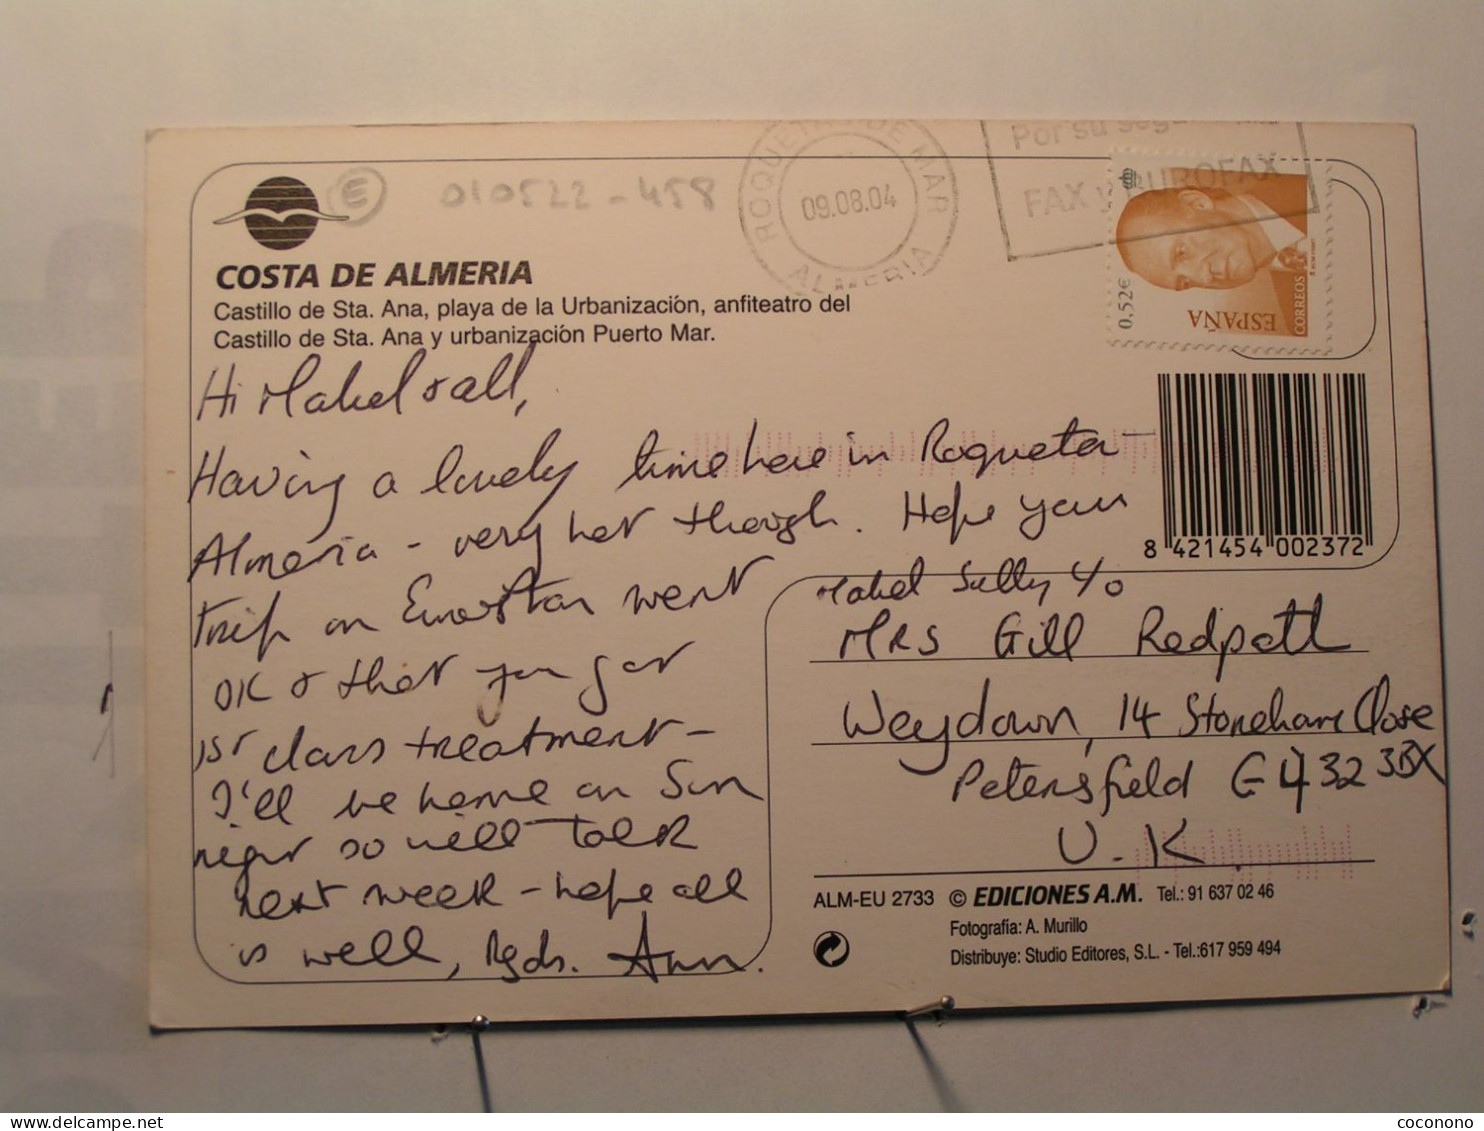 E 010522-458
ROQUETAS DE MAR
09.08.04
ALMERIA
Por su segu
FAX y BUROFAX
0,52€
ESPAÑA
CORREOS
COSTA DE ALMERIA
Castillo de Sta. Ana, playa de la Urbanización, anfiteatro del
Castillo de Sta. Ana y urbanización Puerto Mar.
Hi Mabel & all,
Having a lovely time here in Roqueta-
Almeria - very hot though. Hope your
trip on Eurostar went
OK & that you got
1st class treatment -
I'll be home on Sun
night so will talk
next week - hope all
is well, Rgds. Ann.
8 421454 002372
Mabel Sully c/o
MRS Gill Redpath
Weydown, 14 Stoneham Close
Petersfield G432 3BX
U.K.
ALM-EU 2733 © EDICIONES A.M. Tel.: 91 637 02 46
Fotografía: A. Murillo
Distribuye: Studio Editores, S.L. - Tel.:617 959 494
coconono